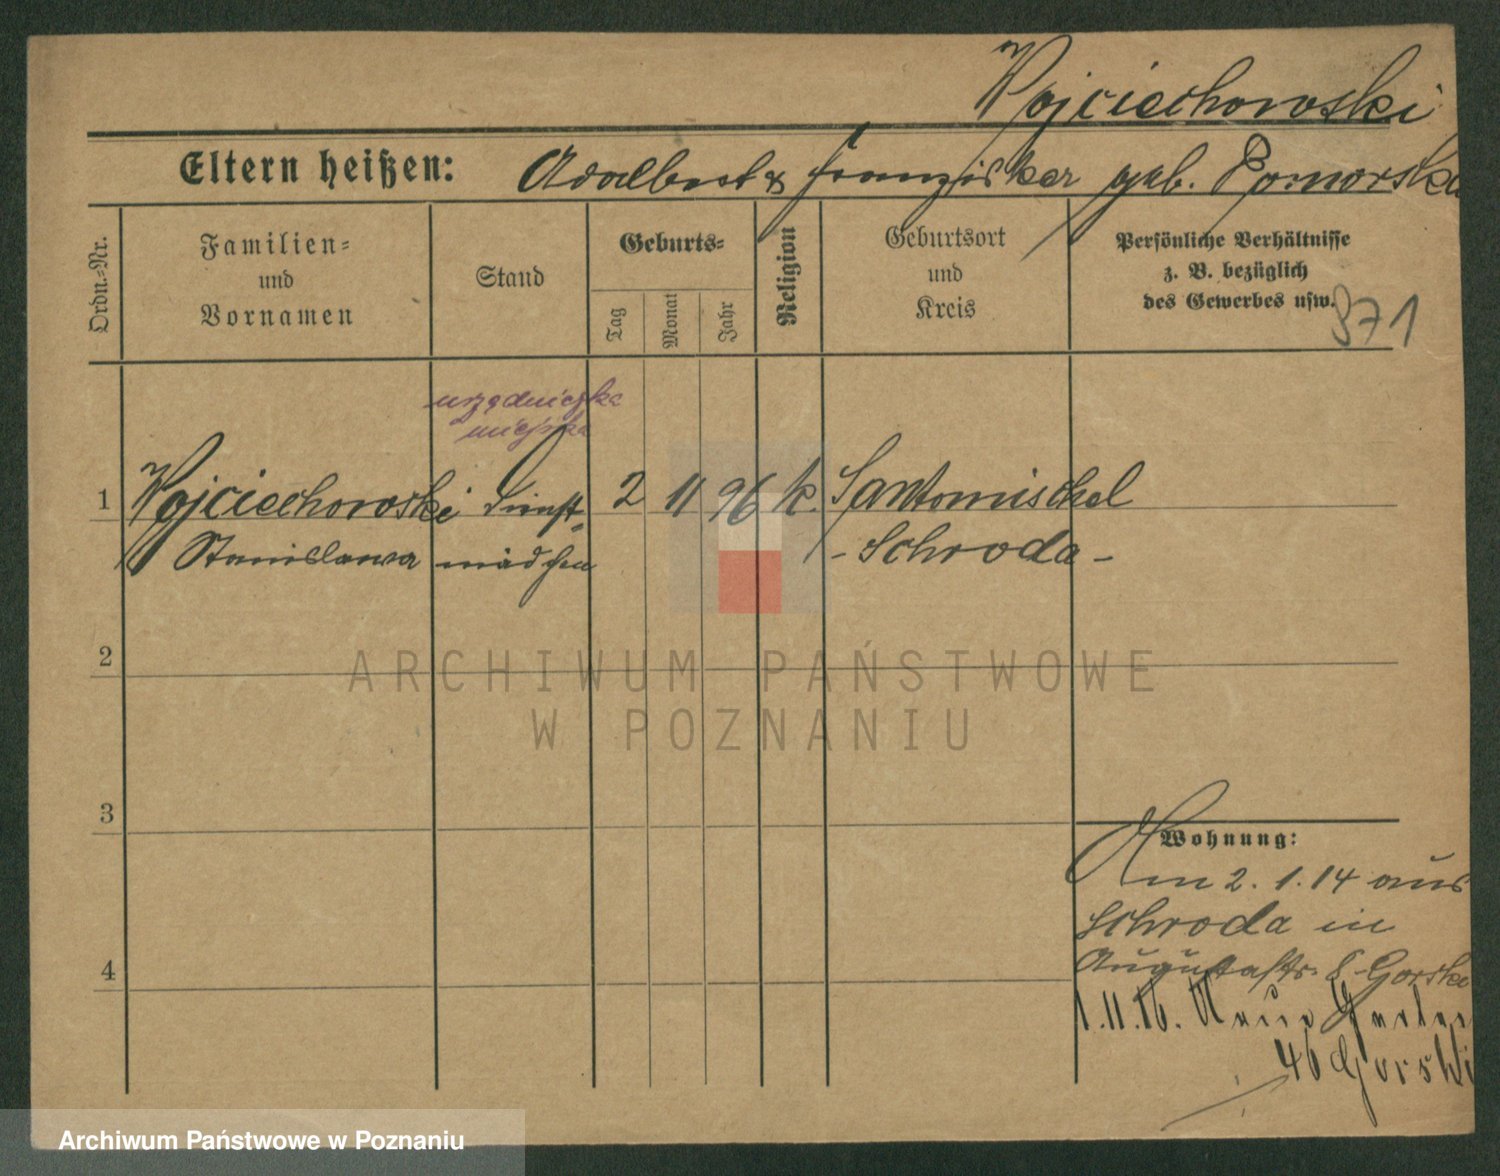 Wojciechowski
Eltern heißen: Adalbert & Franziska geb. Pomorska
Ordn.-Nr.
Familien-
und
Vornamen
Stand
Geburts-
Tag
Monat
Jahr
Religion
Geburtsort
und
Kreis
Persönliche Verhältnisse
z. B. bezüglich
des Gewerbes usw.
871
urzędniczka
miejska
1 Wojciechowski Dienst- 2 11 96 k. Santomischel
Stanislawa mädchen - Schroda -
2
3
4
Wohnung:
Am 2. 1. 14 aus
Schroda in
Augustastr. 8 Gorska
1.11.16. Neue Garten
46 Gorski
ARCHIWUM PAŃSTWOWE
W POZNANIU
Archiwum Państwowe w Poznaniu